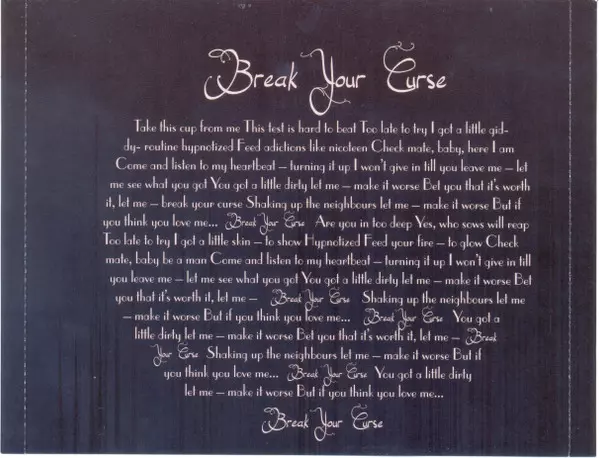 Break Your Curse
Take this cup from me This test is hard to beat Too late to try I got a little gid-
dy- routine hypnotized Feed adictions like nicoteen Check mate, baby, here I am
Come and listen to my heartbeat – turning it up I won't give in till you leave me – let
me see what you got You got a little dirty let me – make it worse Bet you that it's worth
it, let me – break your curse Shaking up the neighbours let me – make it worse But if
you think you love me... Break Your Curse Are you in too deep Yes, who sows will reap
Too late to try I got a little skin – to show Hypnotized Feed your fire – to glow Check
mate, baby be a man Come and listen to my heartbeat – turning it up I won't give in till
you leave me – let me see what you got You got a little dirty let me – make it worse Bet
you that it's worth it, let me – Break Your Curse Shaking up the neighbours let me
– make it worse But if you think you love me... Break Your Curse You got a
little dirty let me – make it worse Bet you that it's worth it, let me – Break
Your Curse Shaking up the neighbours let me – make it worse But if
you think you love me... Break Your Curse You got a little dirty
let me – make it worse But if you think you love me...
Break Your Curse